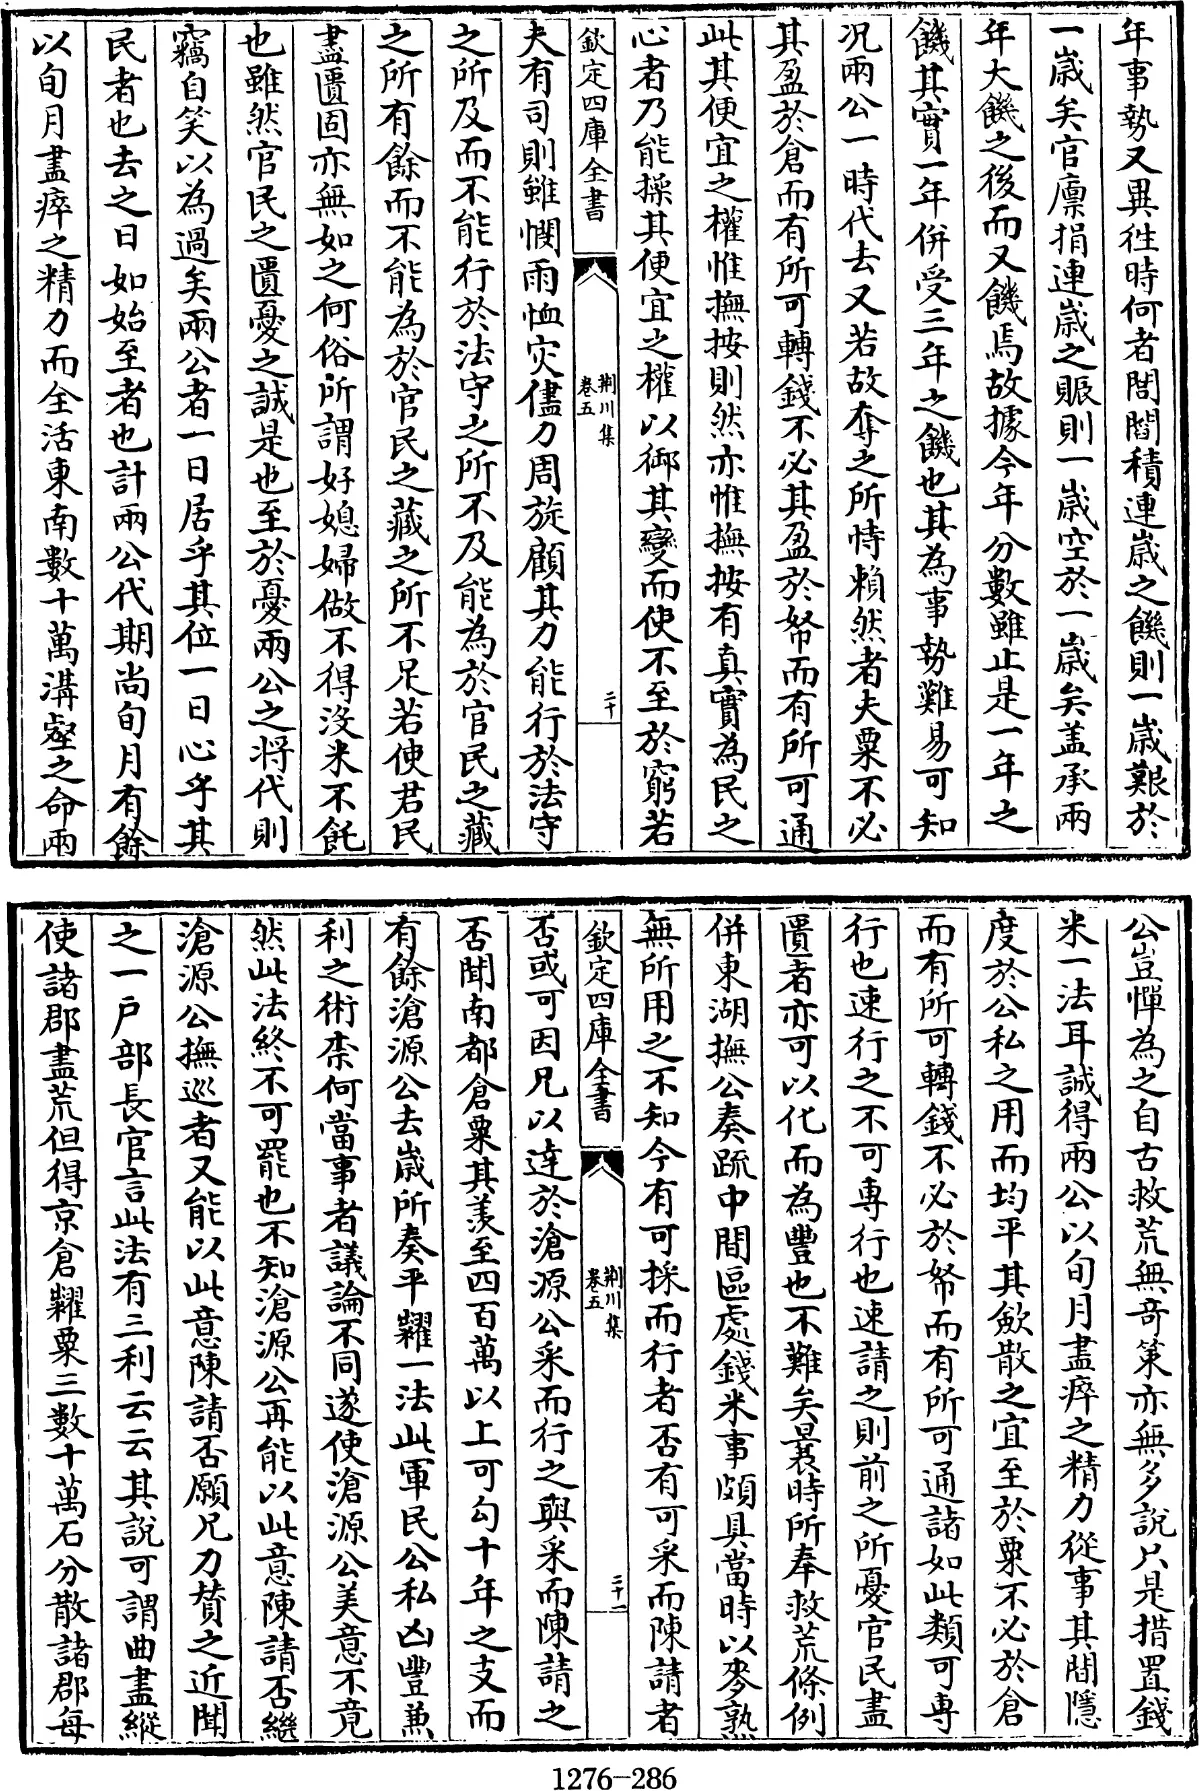 年事勢又異徃時何者閭閻積連歳之饑則一歳艱於
一歳矣官廪捐連歳之賑則一歳空於一歳矣盖承兩
年大饑之後而又饑焉故據今年分數雖止是一年之
饑其實一年併受三年之饑也其為事勢難易可知
况兩公一時代去又若故奪之所恃賴然者夫粟不必
其盈於倉而有所可轉錢不必其盈於帑而有所可通
此其便宜之權惟撫按則然亦惟撫按有真實為民之
心者乃能操其便宜之權以御其變而使不至於窮若
欽定四庫全書
荆川集
卷五
二十
夫有司則雖憫雨恤灾儘力周旋顧其力能行於法守
之所及而不能行於法守之所不及能為於官民之藏
之所有餘而不能為於官民之藏之所不足若使君民
盡匱固亦無如之何俗所謂好媳婦做不得沒米不飥
也雖然官民之匱憂之誠是也至於憂兩公之將代則
竊自笑以為過矣兩公者一日居乎其位一日心乎其
民者也去之日如始至者也計兩公代期尚旬月有餘
以旬月盡瘁之精力而全活東南數十萬溝壑之命兩
公豈憚為之自古救荒無竒策亦無多說只是措置錢
米一法耳誠得兩公以旬月盡瘁之精力從事其間隱
度於公私之用而均平其歛散之宜至於粟不必於倉
而有所可轉錢不必於帑而有所可通諸如此類可専
行也速行之不可専行也速請之則前之所憂官民盡
匱者亦可以化而為豐也不難矣曩時所奉救荒條例
併東湖撫公奏疏中間區處錢米事頗具當時以麥熟
無所用之不知今有可採而行者否有可采而陳請者
欽定四庫全書
荆川集
卷五
二十一
否或可因兄以逹於滄源公采而行之與采而陳請之
否聞南都倉粟其羡至四百萬以上可勾十年之支而
有餘滄源公去歳所奏平糶一法此軍民公私凶豐兼
利之術柰何當事者議論不同遂使滄源公美意不竟
然此法終不可罷也不知滄源公再能以此意陳請否繼
滄源公撫巡者又能以此意陳請否願兄力賛之近聞
之一戶部長官言此法有三利云云其說可謂曲盡縱
使諸郡盡荒但得京倉糶粟三數十萬石分散諸郡每
1276-286